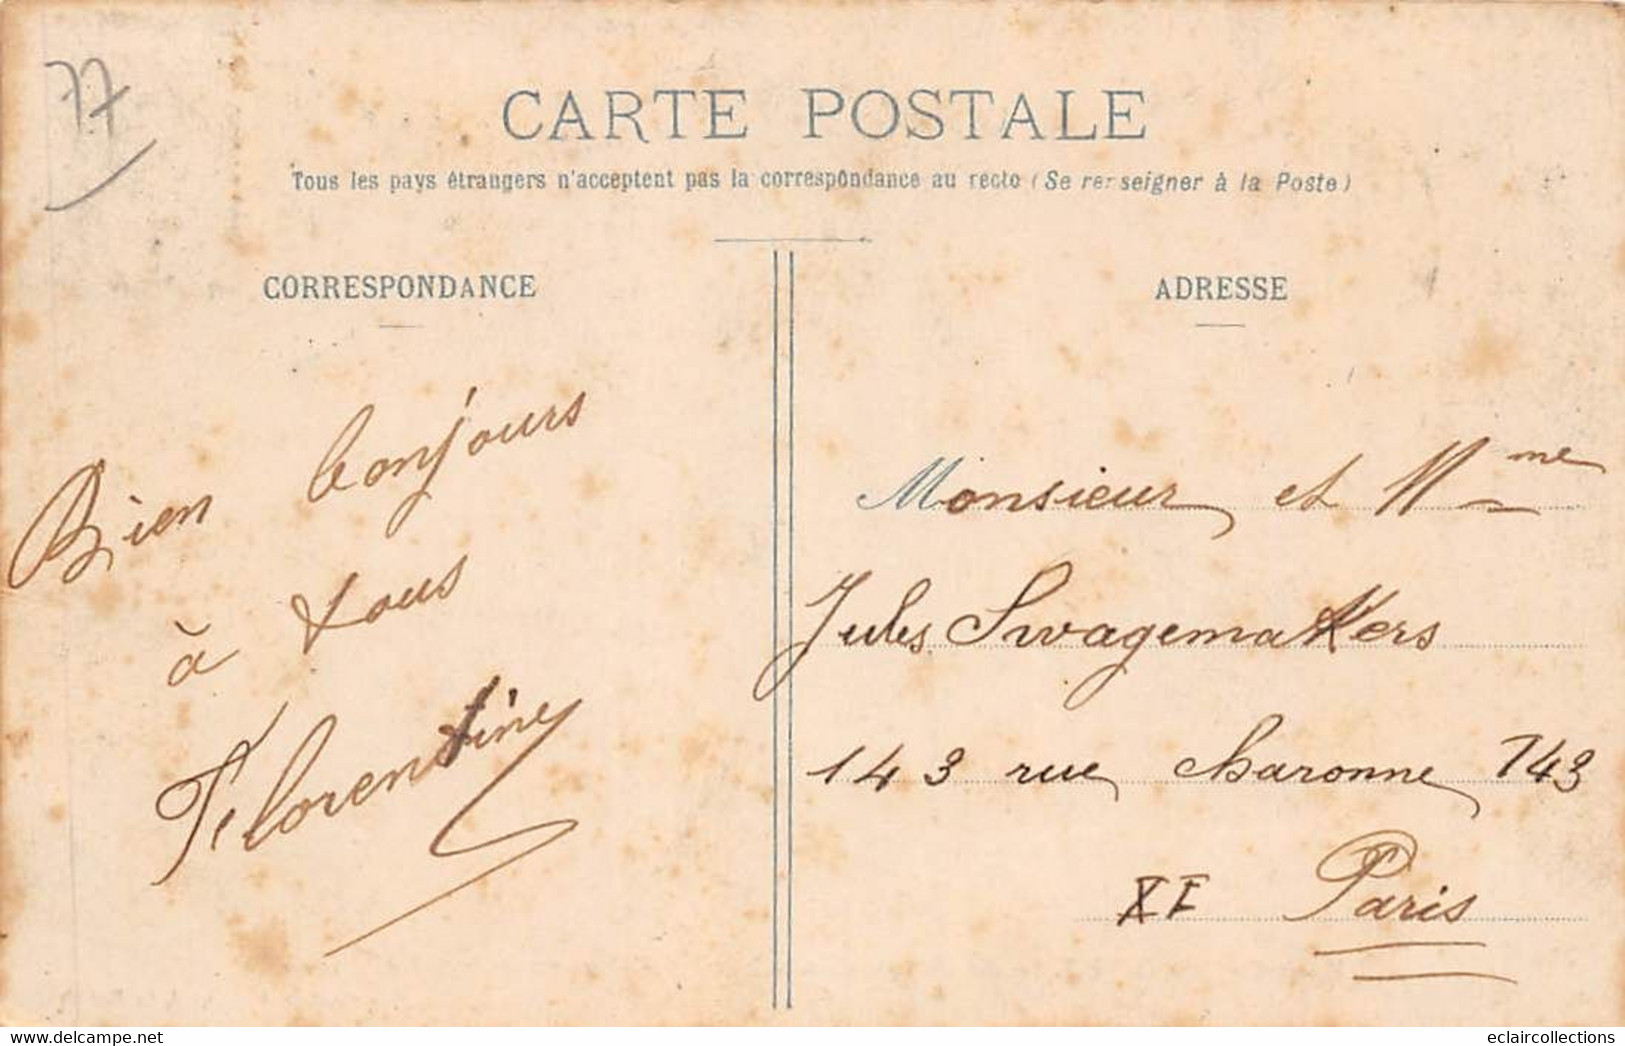 77
CARTE POSTALE
Tous les pays étrangers n'acceptent pas la correspondance au recto (Se renseigner à la Poste)
CORRESPONDANCE
Bien bonjours
à tous
Florentine
ADRESSE
Monsieur et Mme
Jules Swagemakers
143 rue Charonne 143
XI Paris
www.delcampe.net
eclaircollections